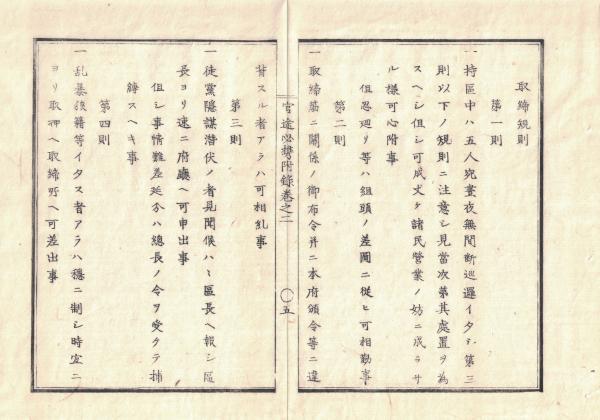 取締規則
第一則
一持區中ハ五人宛晝夜無間断巡邏イタシ第三
則以下ノ規則ニ注意シ見當次第其處置ヲ為
スヘシ但シ可成丈ケ諸民營業ノ妨ニ成ラサ
ル様可心附事
但忍廻リ等ハ組頭ノ差圖ニ從ヒ可相勤事
第二則
一取締筋ニ關係ノ御布令并ニ本府頒令等ニ違
官途必携附錄巻之二
〇五
背スル者アラハ可相糺事
第三則
一徒黨隠謀潜伏ノ者見聞候ハヽ區長ヘ報シ區
長ヨリ速ニ府廳ヘ可申出事
但シ事情難差延分ハ總長ノ令ヲ受ケテ捕
縛スヘキ事
第四則
一乱暴狼籍等イタス者アラハ穏ニ制シ時宜ニ
ヨリ取押ヘ取締所ヘ可差出事